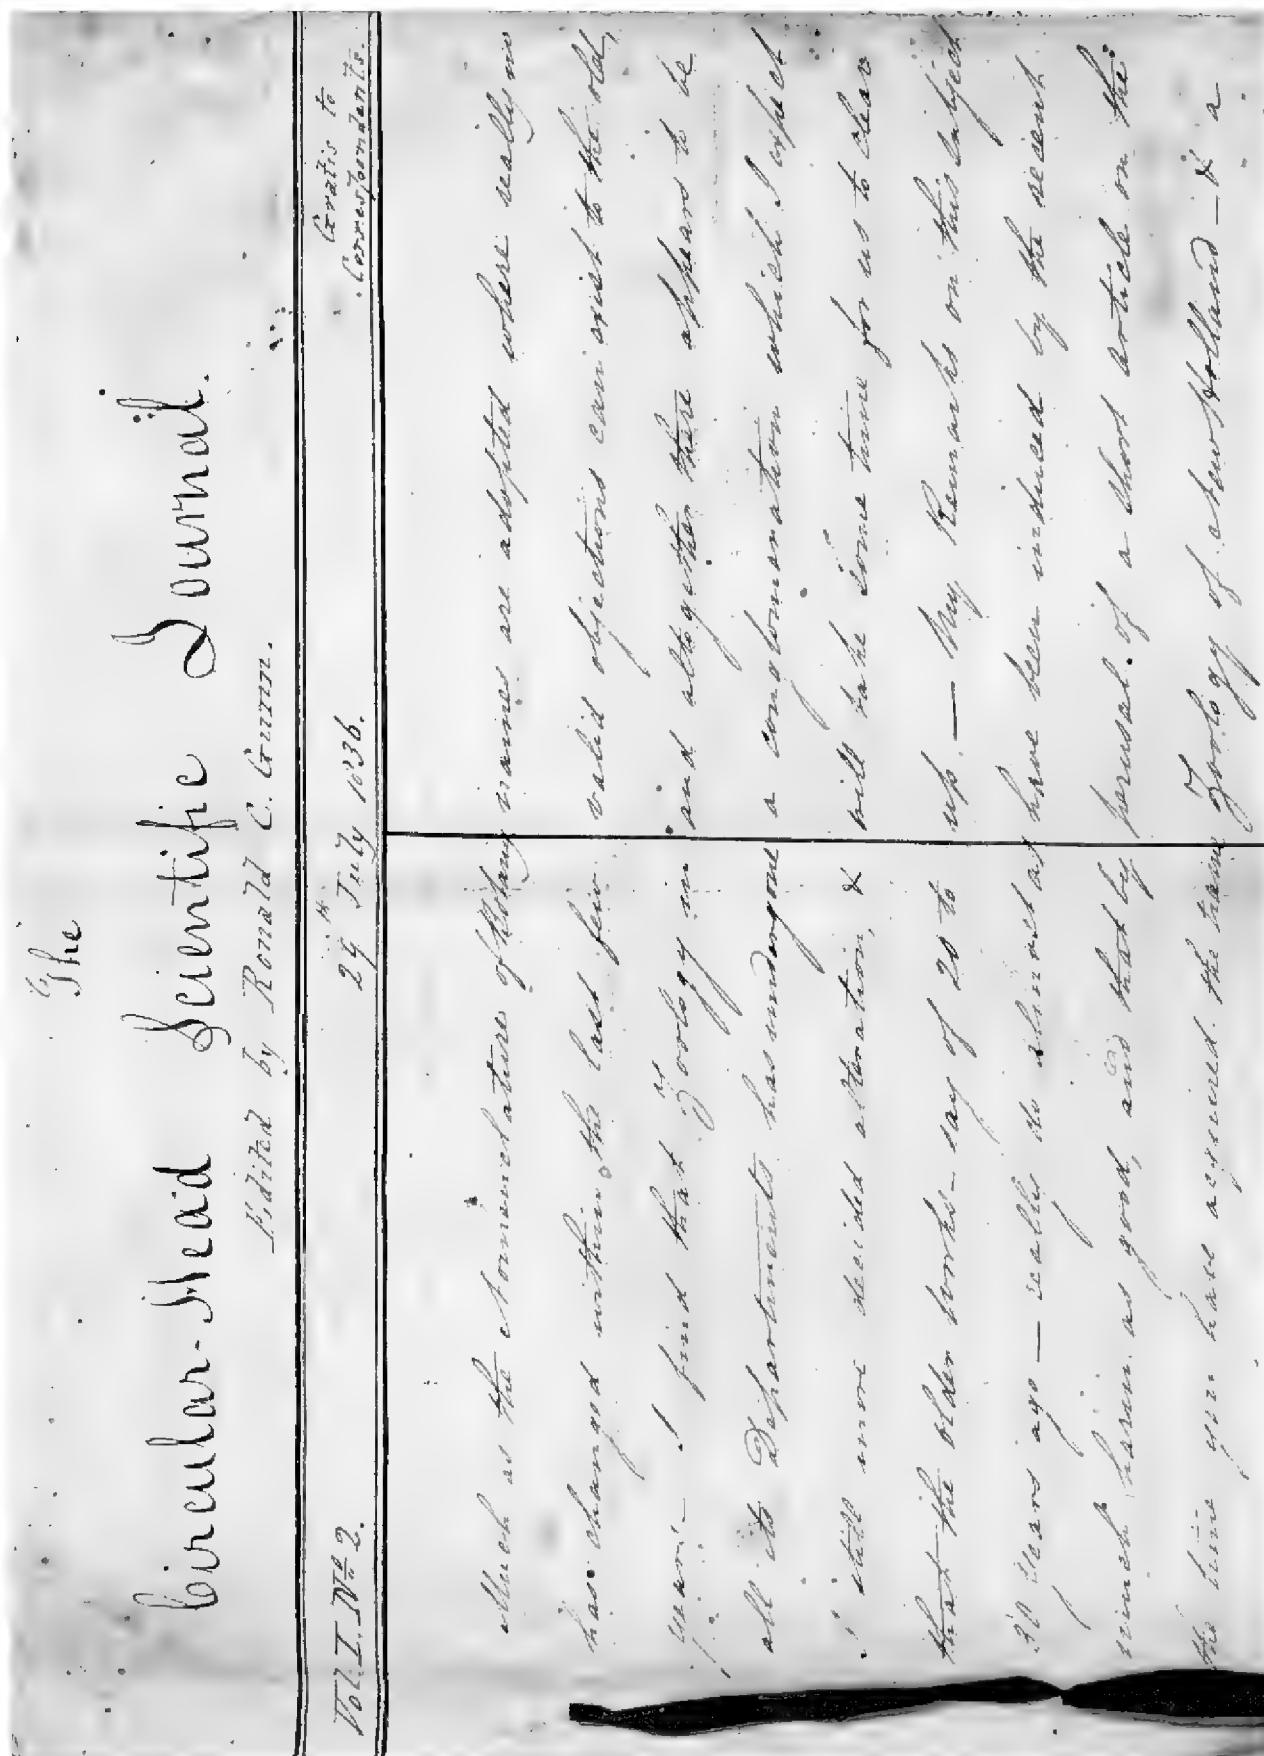 The
Circular-Head Scientific Journal.
Edited by Ronald C. Gunn.
Vol. I. No. 2.
29th July 1836.
Gratis to
Correspondents.
Much as the Nomenclature of Botany
has changed within the last few
years — I find that as Zoology in
all its Departments has undergone
a still more decided alteration, &
that the older works — say of 20 to
30 Years ago — really do almost as
much harm as good, and that by
the time you have acquired the
names are adopted where really no
valid objections can exist to the old,
and altogether there appears to be
a conglomeration which I expect
will take some time for us to clear
up. — My Remarks on this subject
have been induced by the recent
perusal of a short article on the
Zoology of New Holland — & a